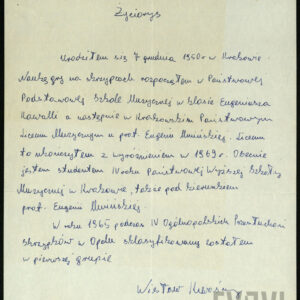 Życiorys
Urodziłem się 7 grudnia 1950 r. w Krakowie.
Naukę gry na skrzypcach rozpocząłem w Państwowej
Podstawowej Szkole Muzycznej w klasie Eugeniusza
a następnie w Krakowskim Państwowym
Liceum Muzycznym u prof. Eugenii Umińskiej. Liceum
to ukończyłem z wyróżnieniem w 1969 r. Obecnie
jestem studentem IV roku Państwowej Wyższej Szkoły
Muzycznej w Krakowie, także pod kierunkiem
prof. Eugenii Umińskiej.
W roku 1965 podczas IV Ogólnopolskich Przesłuchań
skrzypków w Opolu sklasyfikowany zostałem
w pierwszej grupie
Wiesław